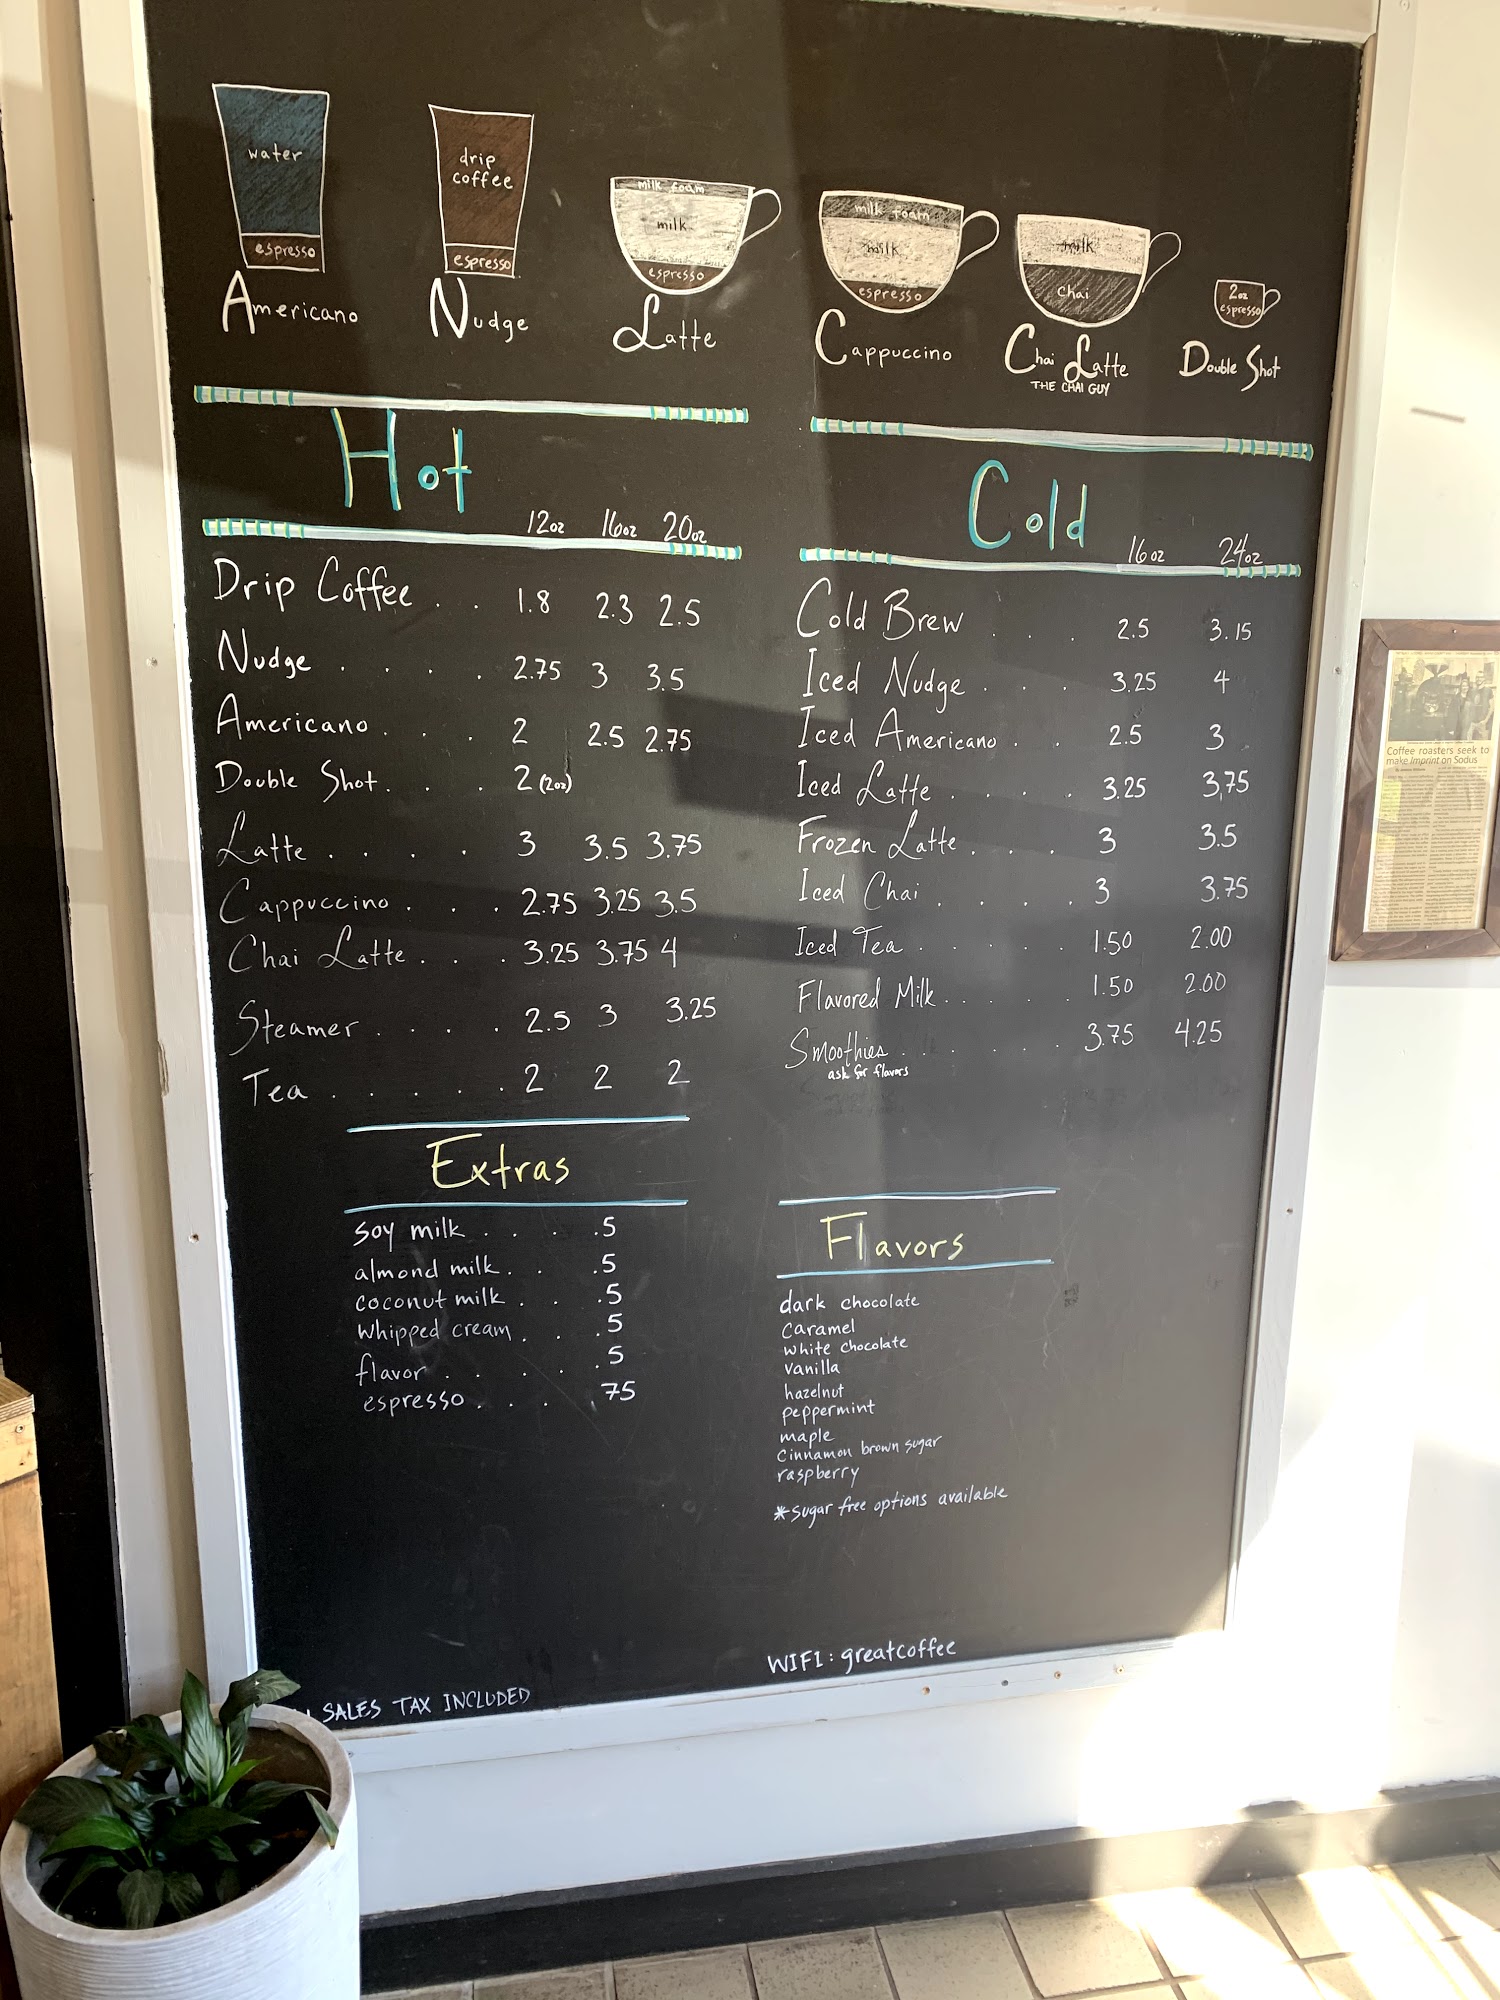 water
espresso
Americano
drip
coffee
espresso
Nudge
milk foam
milk
espresso
Latte
milk foam
milk
espresso
Cappuccino
milk
chai
Chai Latte
THE CHAI GUY
2oz
espresso
Double Shot
Hot
12oz 16oz 20oz
Drip Coffee . . 1.8 2.3 2.5
Nudge . . . . 2.75 3 3.5
Americano . . . 2 2.5 2.75
Double Shot . . . 2 (2oz)
Latte . . . . 3 3.5 3.75
Cappuccino . . . 2.75 3.25 3.5
Chai Latte . . . 3.25 3.75 4
Steamer . . . . 2.5 3 3.25
Tea . . . . . 2 2 2
Cold
16oz 24oz
Cold Brew . . . 2.5 3.15
Iced Nudge . . . 3.25 4
Iced Americano . . 2.5 3
Iced Latte . . . . 3.25 3.75
Frozen Latte . . . 3 3.5
Iced Chai . . . . 3 3.75
Iced Tea . . . . . 1.50 2.00
Flavored Milk . . . . 1.50 2.00
Smoothies . . . . . 3.75 4.25
ask for flavors
Extras
soy milk . . . .5
almond milk . . .5
coconut milk . . .5
whipped cream . . .5
flavor . . . . .5
espresso . . . .75
Flavors
dark chocolate
caramel
white chocolate
vanilla
hazelnut
peppermint
maple
cinnamon brown sugar
raspberry
*sugar free options available
WIFI: greatcoffee
SALES TAX INCLUDED
Coffee roasters seek to
make Imprint on Sodus